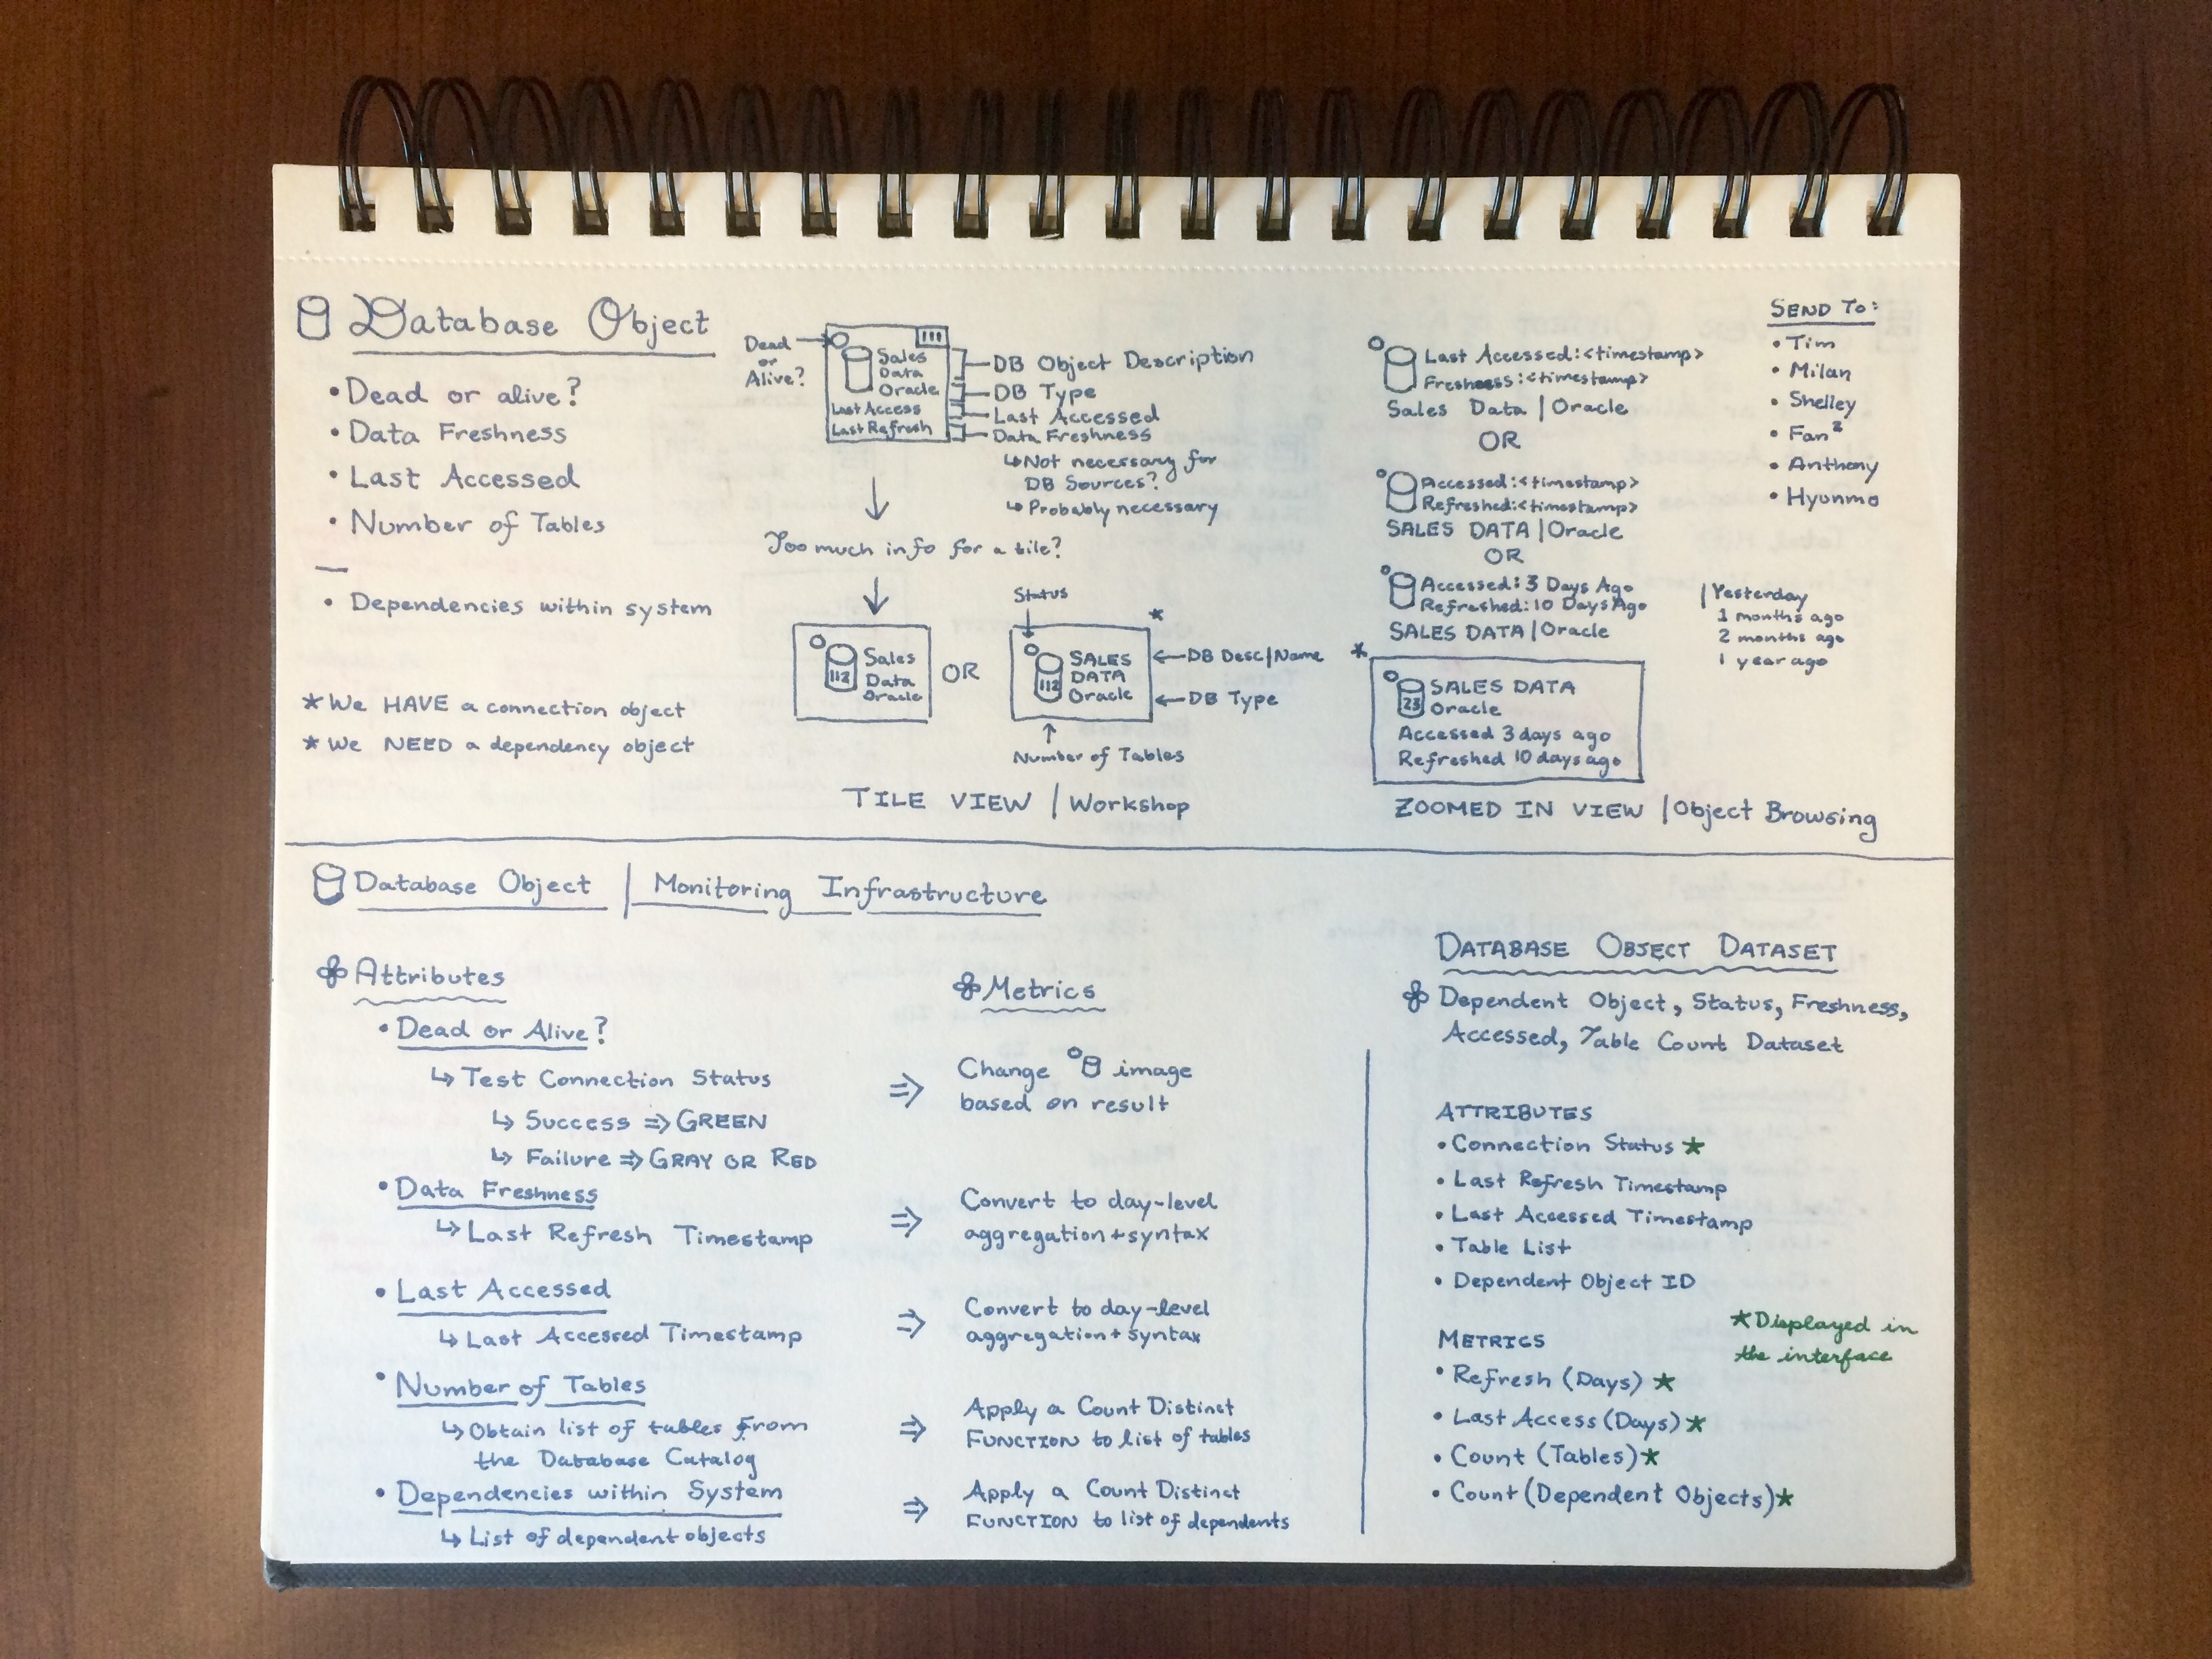 Database Object
• Dead or alive?
• Data Freshness
• Last Accessed
• Number of Tables
—
• Dependencies within system
* We HAVE a connection object
* We NEED a dependency object
Dead
or
Alive?
Sales
Data
Oracle
Last Access
Last Refresh
DB Object Description
DB Type
Last Accessed
Data Freshness
↳ Not necessary for
DB Sources?
↳ Probably necessary
Too much info for a tile?
112
Sales
Data
Oracle
OR
Status
*
112
SALES
DATA
Oracle
← DB Desc|Name
← DB Type
Number of Tables
TILE VIEW | Workshop
Last Accessed:<timestamp>
Freshness:<timestamp>
Sales Data | Oracle
OR
Accessed:<timestamp>
Refreshed:<timestamp>
SALES DATA | Oracle
OR
Accessed: 3 Days Ago
Refreshed: 10 Days Ago
SALES DATA | Oracle
| Yesterday
1 months ago
2 months ago
1 year ago
*
23
SALES DATA
Oracle
Accessed 3 days ago
Refreshed 10 days ago
ZOOMED IN VIEW | Object Browsing
SEND TO:
• Tim
• Milan
• Shelley
• Fan²
• Anthony
• Hyunmo
Database Object | Monitoring Infrastructure
Attributes
• Dead or Alive?
↳ Test Connection Status
↳ Success ⇒ GREEN
↳ Failure ⇒ GRAY OR RED
• Data Freshness
↳ Last Refresh Timestamp
• Last Accessed
↳ Last Accessed Timestamp
• Number of Tables
↳ Obtain list of tables from
the Database Catalog
• Dependencies within System
↳ List of dependent objects
Metrics
⇒ Change image
based on result
⇒ Convert to day-level
aggregation + syntax
⇒ Convert to day-level
aggregation + syntax
⇒ Apply a Count Distinct
FUNCTION to list of tables
⇒ Apply a Count Distinct
FUNCTION to list of dependents
DATABASE OBJECT DATASET
Dependent Object, Status, Freshness,
Accessed, Table Count Dataset
ATTRIBUTES
• Connection Status *
• Last Refresh Timestamp
• Last Accessed Timestamp
• Table List
• Dependent Object ID
* Displayed in
the interface
METRICS
• Refresh (Days) *
• Last Access (Days) *
• Count (Tables) *
• Count (Dependent Objects) *